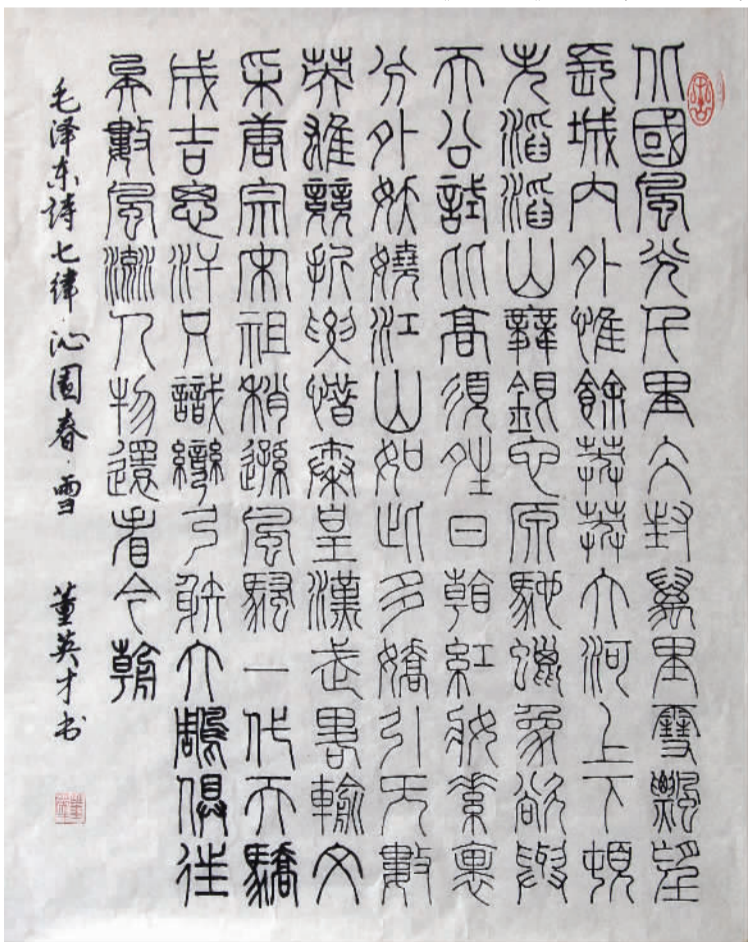 北國風光千里冰封萬里雪飄望
長城內外惟餘莽莽大河上下頓
失滔滔山舞銀它原馳蠟象欲與
天公試比高須晴日看紅妝素裹
分外妖嬈江山如此多嬌引无數
英雄競折腰惜秦皇漢武略輸文
采唐宗宋祖稍遜風騷一代天驕
成吉思汗只識彎弓射大鵰俱往
矣數風流人物還看今朝
毛泽东诗七律·沁园春·雪 董英才书